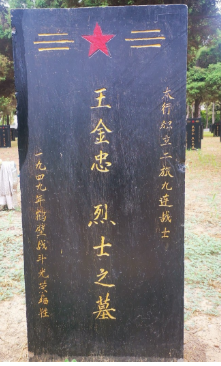 太行独立二旅九连战士
王金忠 烈士之墓
一九四九年鹤壁战斗光荣牺牲